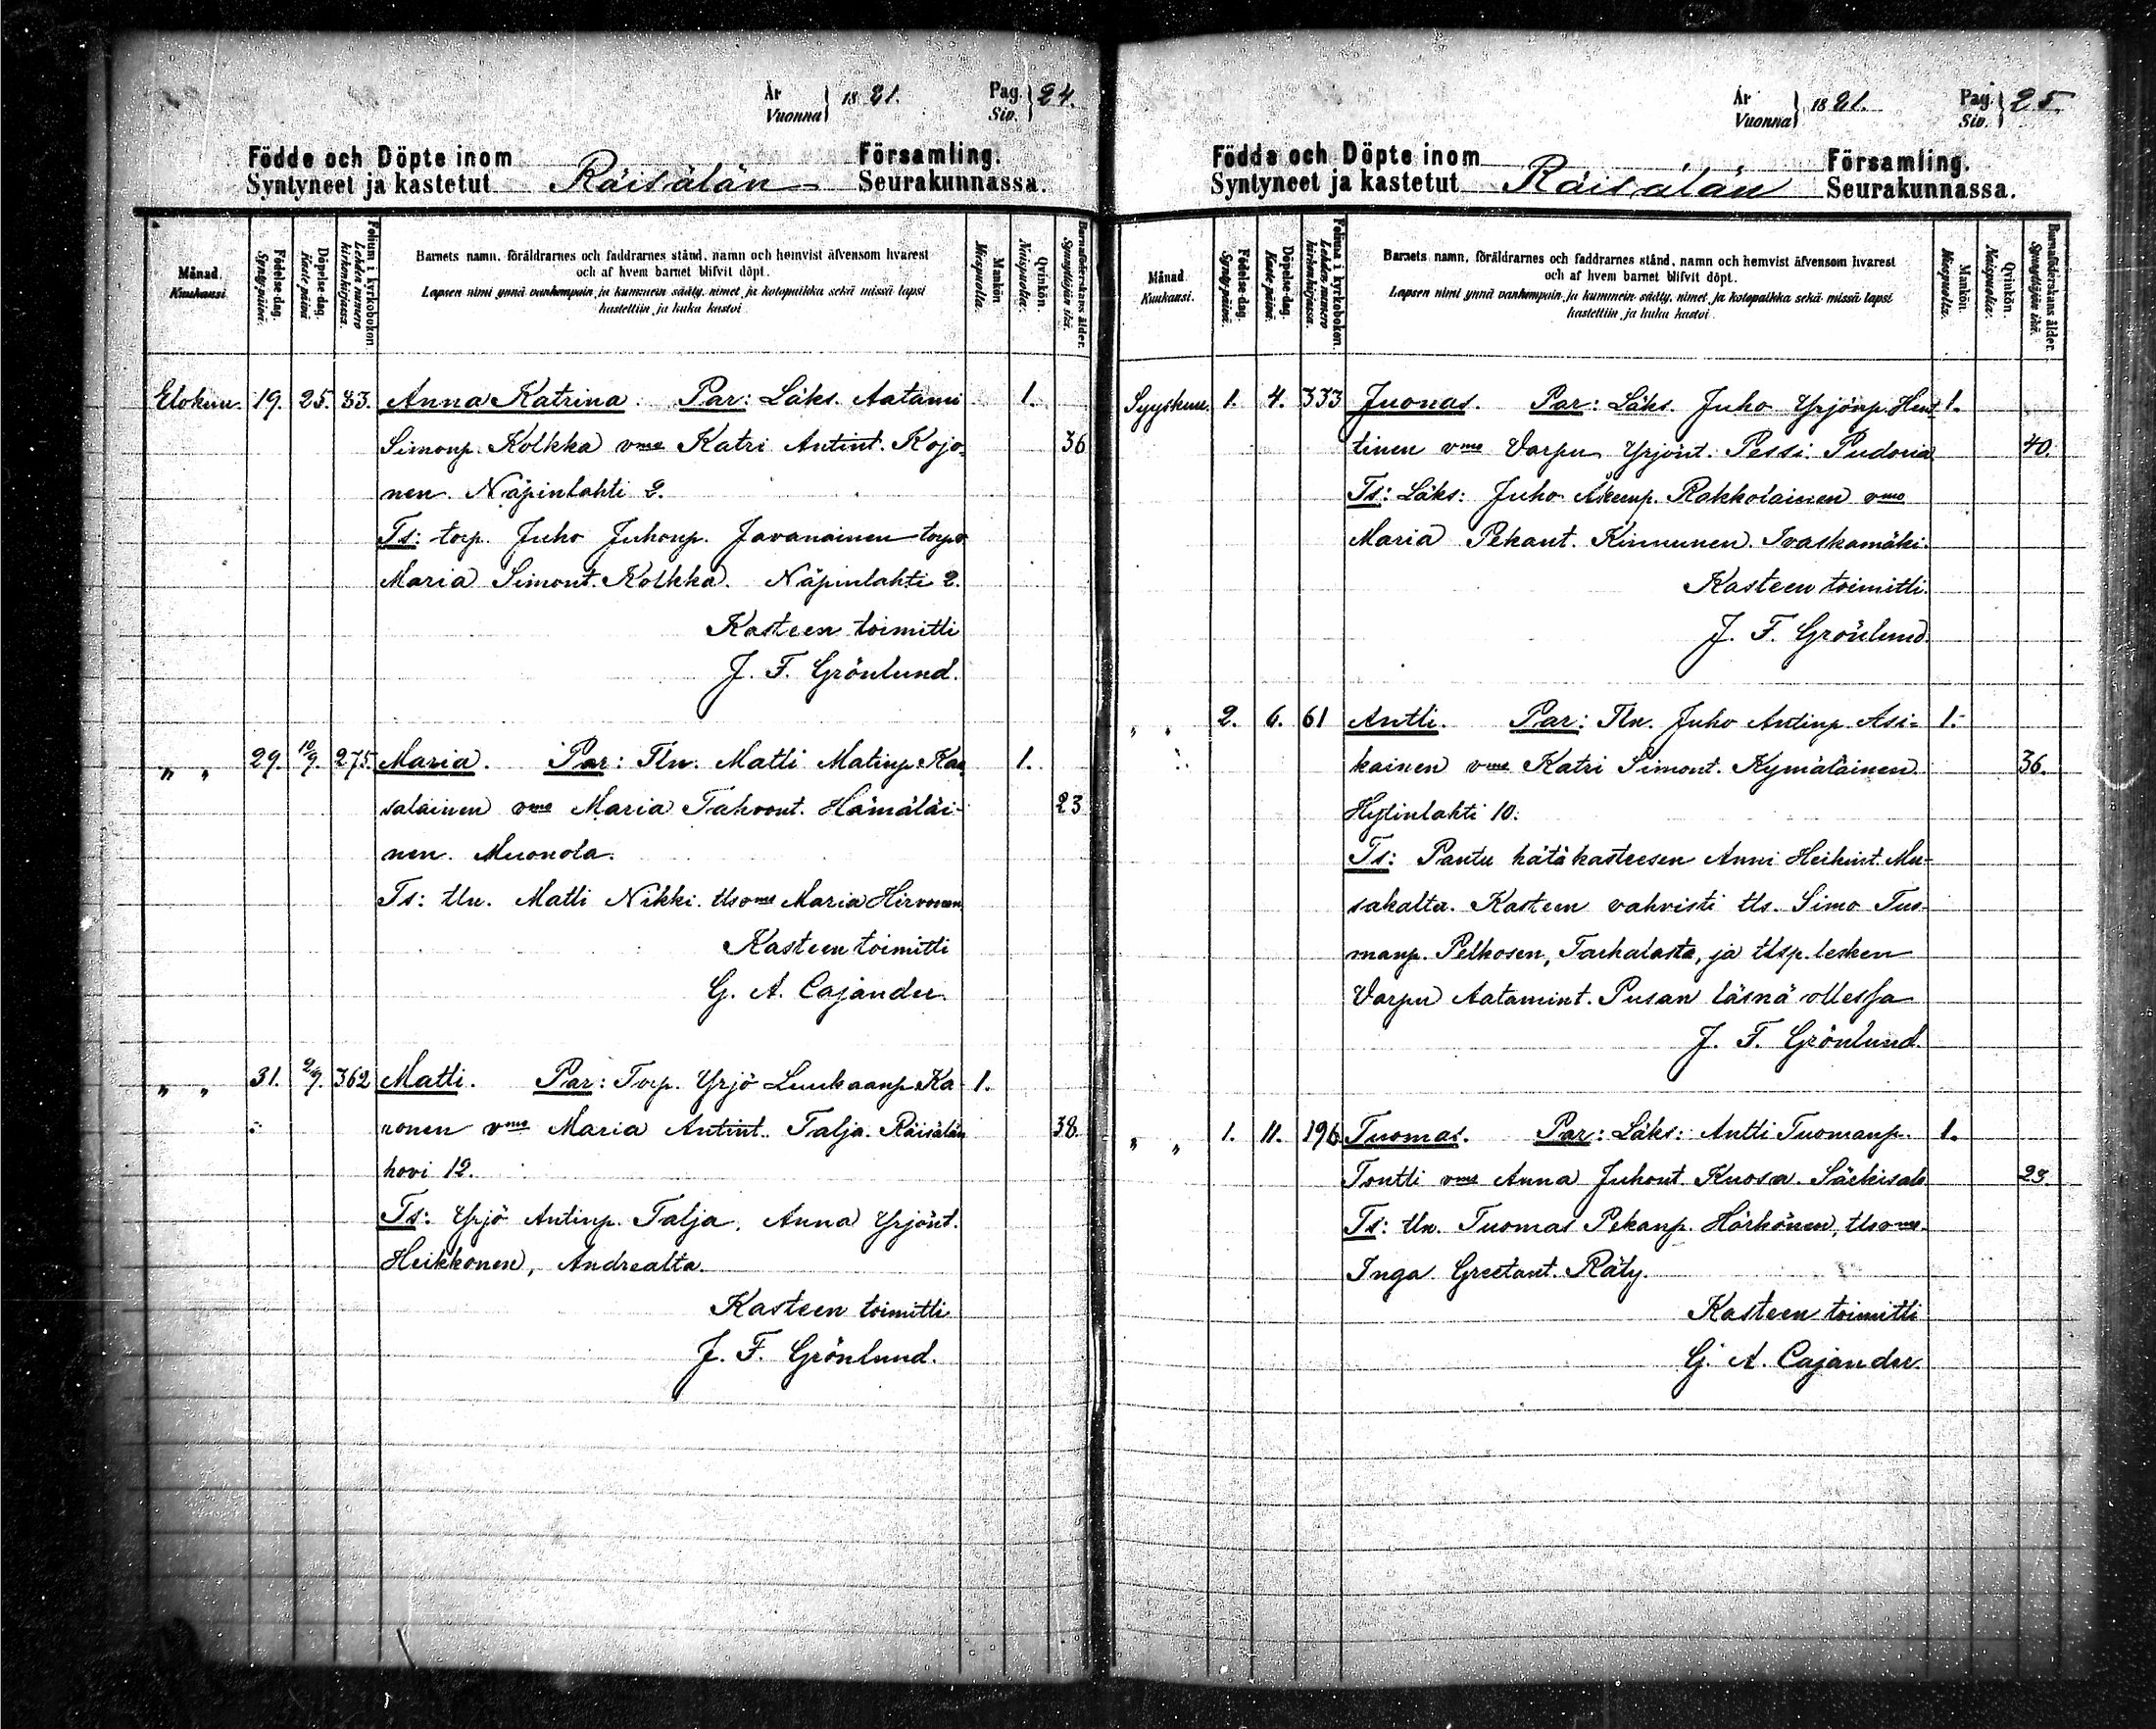 År
Vuonna } 1881. Pag. Siv. } 24.
Födde och Döpte inom Församling.
Syntyneet ja kastetut Räisälän Seurakunnassa.
Månad. Kuukausi.
Födelse-dag. Synty-päivä.
Döpelse-dag. Kaste-päivä
Folium i kyrkoboken. Lehden numero kirkonkirjassa.
Barnets namn, föräldrarnes och faddrarnes stånd, namn och hemvist äfvensom hvarest
och af hvem barnet blifvit döpt.
Lapsen nimi ynnä vanhempain ja kummein sääty, nimet ja kotopaikka sekä missä lapsi
kastettiin ja kuka kastoi
Mankön. Miespuolia.
Qvinkön. Naispuolia.
Barnaföderskans ålder. Synnyttäjän ikä.
Elokuu. 19. 25. 83. Anna Katrina. Par: Läks. Aatami 1.
Simonp. Kolkka vmo Katri Antint. Kojo- 36
nen. Näpinlahti 2.
Ts: torp. Juho Juhonp. Javanainen torpv
Maria Simont. Kolkka. Näpinlahti 2.
Kasteen toimitti
J. F. Grönlund.
" " 29. 10/9. 275. Maria. Par: Tln. Matti Matinp. Kan 1.
salainen vmo Maria Tahvont. Hämäläi- 23
nen. Muonola.
Ts: tln. Matti Nikki. tlsvmo Maria Hirvonen
Kasteen toimitti
G. A. Cajander.
" " 31. 2/9. 362 Matti. Par: Torp. Yrjö Luukaanp. Ka- 1.
ronen vmo Maria Antint. Talja. Räisälän 38.
hovi 12.
Ts: Yrjö Antinp. Talja, Anna Yrjönt.
Heikkonen, Andrealta.
Kasteen toimitti
J. F. Grönlund.
År
Vuonna } 1881. Pag. Siv. } 25.
Födde och Döpte inom Församling.
Syntyneet ja kastetut Räisälän Seurakunnassa.
Månad. Kuukausi.
Födelse-dag. Synty-päivä.
Döpelse-dag. Kaste-päivä.
Folium i kyrkoboken. Lehden numero kirkonkirjassa.
Barnets namn, föräldrarnes och faddrarnes stånd, namn och hemvist äfvensom hvarest
och af hvem barnet blifvit döpt.
Lapsen nimi ynnä vanhempain ja kummein sääty, nimet ja kotopaikka sekä missä lapsi
kastettiin ja kuka kastoi
Mankön. Miespuolia.
Qvinkön. Naispuolia.
Barnaföderskans ålder. Synnyttäjän ikä.
Syyskuu. 1. 4. 333 Juonas. Par: Läks. Juho Yrjönp. Hent 1.
tinen vmo Varpu Yrjönt. Pessi. Pudoria 40.
Ts: Läks: Juho Rakkolainen vmo
Maria Pekant. Kinnunen. Ivaskamäki.
Kasteen toimitti.
J. F. Grönlund.
" " 2. 6. 61 Antti. Par: Tln. Juho Antinp. Asi- 1.
kainen vmo Katri Simont. Kymäläinen. 36.
Hytinlahti 10.
Ts: Pantu hätäkasteesen Anni Heikint. Mu-
sakalta. Kasteen vahvisti tls. Simo Tuo-
manp. Pelkosen, Tarhalasta, ja tlsp. lesken
Varpu Aatamint. Pusan läsnä ollessa
J. F. Grönlund.
" " 1. 11. 196 Tuomas. Par: Läks: Antti Tuomanp. 1.
Tontti vmo Anna Juhont. Kuosa. Särkisalo 29.
Ts: tln. Tuomas Pekanp. Hörkönen, tlsvmo.
Inga Greetant. Räty.
Kasteen toimitti
G. A. Cajander.